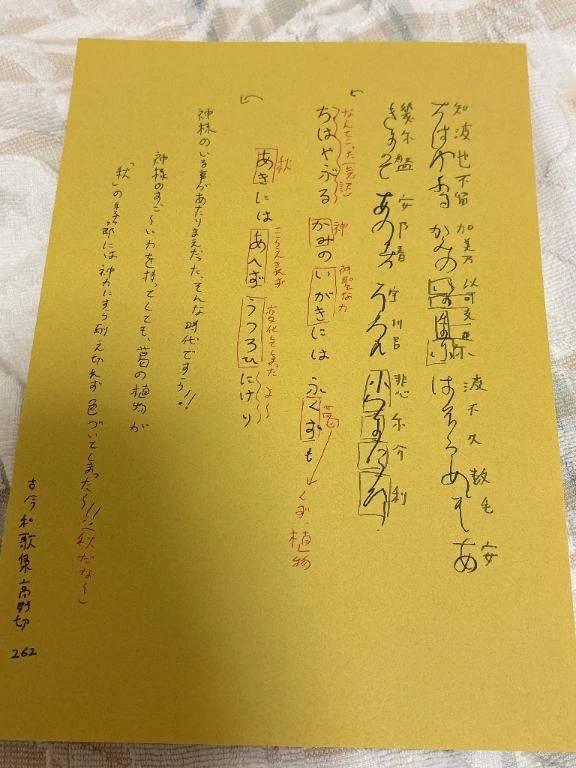 知波也不留 加美乃 以可支尓 波不久数毛 安
ちはやふる かみの いかきに はふくすも あ
幾尓盤 安 春 宇川呂 悲尓介利
きには あへす うつろ ひにけり
神 神聖な力 葛
ちはやぶる かみの いがきには ふくずも
くず・植物
秋 こらえきれず 変化してしまったよ〜
あきには あへず うつろひにけり
神様のいる事があたりまえだった、そんな時代ですう!!
神様のすご〜い力を持ってしても、葛の植物が
「秋」の季節には神力にすら耐えきれず色づいてしまった〜!!(秋だな〜)
古今和歌集高野切 262